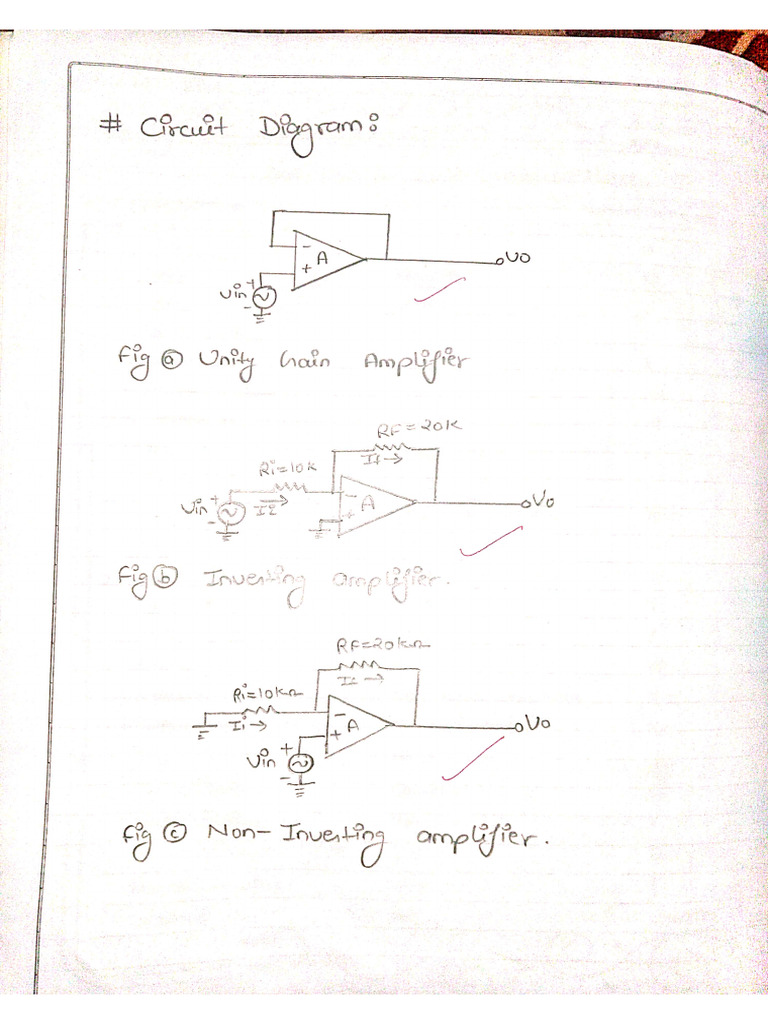 # Circuit Diagram:
-
A
+
Vo
+
Vin
-
Fig (a) Unity Gain Amplifier
RF=20K
Ri=10K
-
A
+
Vo
+
Vin
-
Fig (b) Inverting amplifier.
RF=20kΩ
Ri=10kΩ
-
A
+
Vo
Ii →
+
Vin
-
Fig (c) Non-Inverting amplifier.